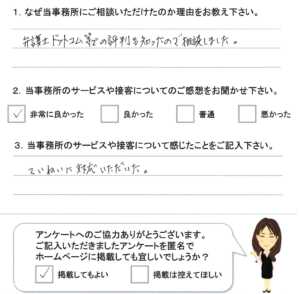 1. なぜ当事務所にご相談いただけたのか理由をお教え下さい。
弁護士ドットコム等での評判を知ったので相談しました。
2. 当事務所のサービスや接客についてのご感想をお聞かせ下さい。
✓ 非常に良かった 良かった 普通 悪かった
3. 当事務所のサービスや接客について感じたことをご記入下さい。
ていねいに対応いただいた。
アンケートへのご協力ありがとうございます。
ご記入いただきましたアンケートを匿名で
ホームページに掲載しても宜しいでしょうか?
✓ 掲載してもよい 掲載は控えてほしい